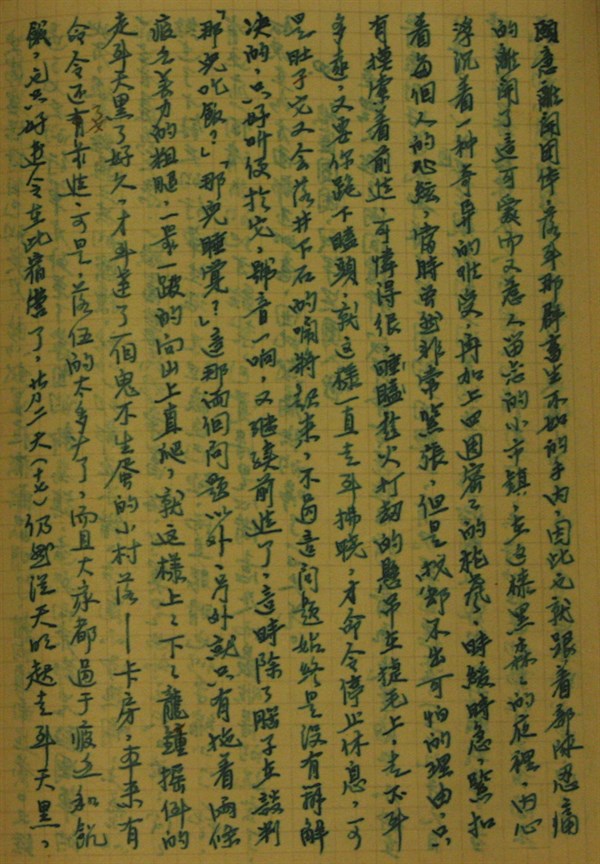 願意離開团体,落到那群畜生不如的手內,因此也就跟着部隊忍痛
的離開了這可愛而又惹人留恋的小市鎮,在这樣黑森森的夜裡,內心
浮沉着一种奇异的难受,再加上四週密密的枪声,時緩時急,緊扣
着每個人的心絃,當時虽然非常緊張,但是說都不出可怕的理由,只
有摸索着前進,可惜得很,瞌睡趁火打刼的懸吊在睫毛上,走不到
多遠,又要你跪下瞌頭,就這樣一直走到拂曉,才命令停止休息,可
是肚子完又会落井下石的鬧將起來,不過這問題始終是沒有辦解
決的,只好听便於它,號音一响,又继续前進了,這時除了脖子在談判
「那兒吃飯?」「那兒睡覺?」這那兩個問題以外,另外就只有拖着兩條
疲乏无力的粗腿,一步一跛的向山上直爬,就這樣上上下下龍鐘搖倒的
走到天黑了好久,才到達了一個鬼不生蛋的小村落——卡房,本來有
命令还有前進,可是,落伍的太多了,而且大家都過于疲乏和飢
餓,也只好遵令在此宿營了,廿二天(十七)仍然從天明起走到天黑,